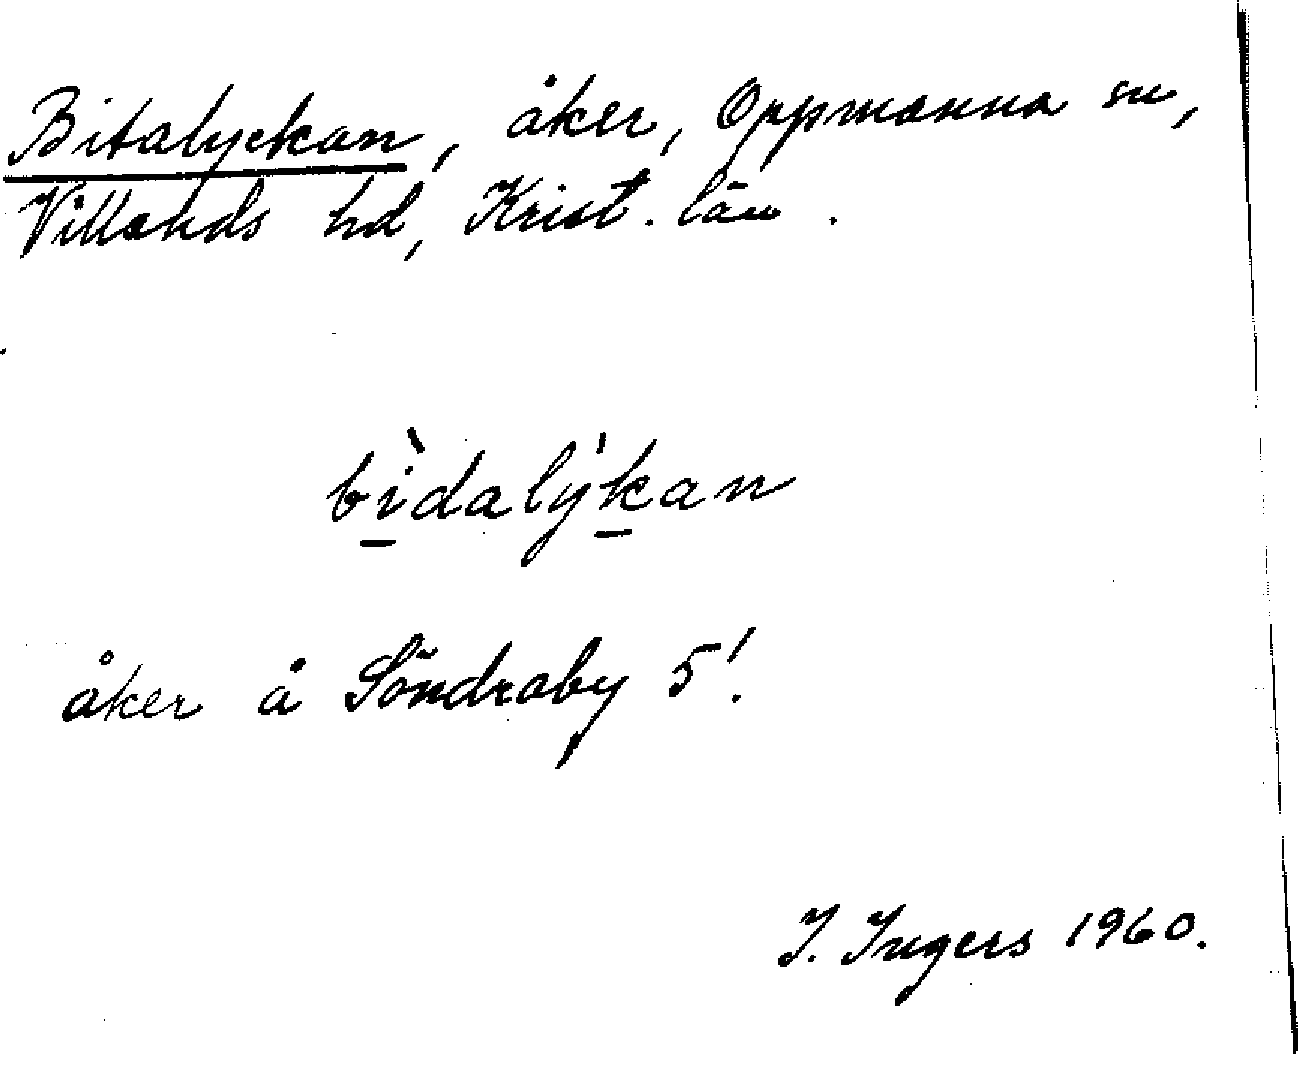 Bitalyckan, åker, Oppmanna sn,
Villands hd, Krist. län.
bìdalýkan
åker å Söndraby 5!
I. Ingers 1960.